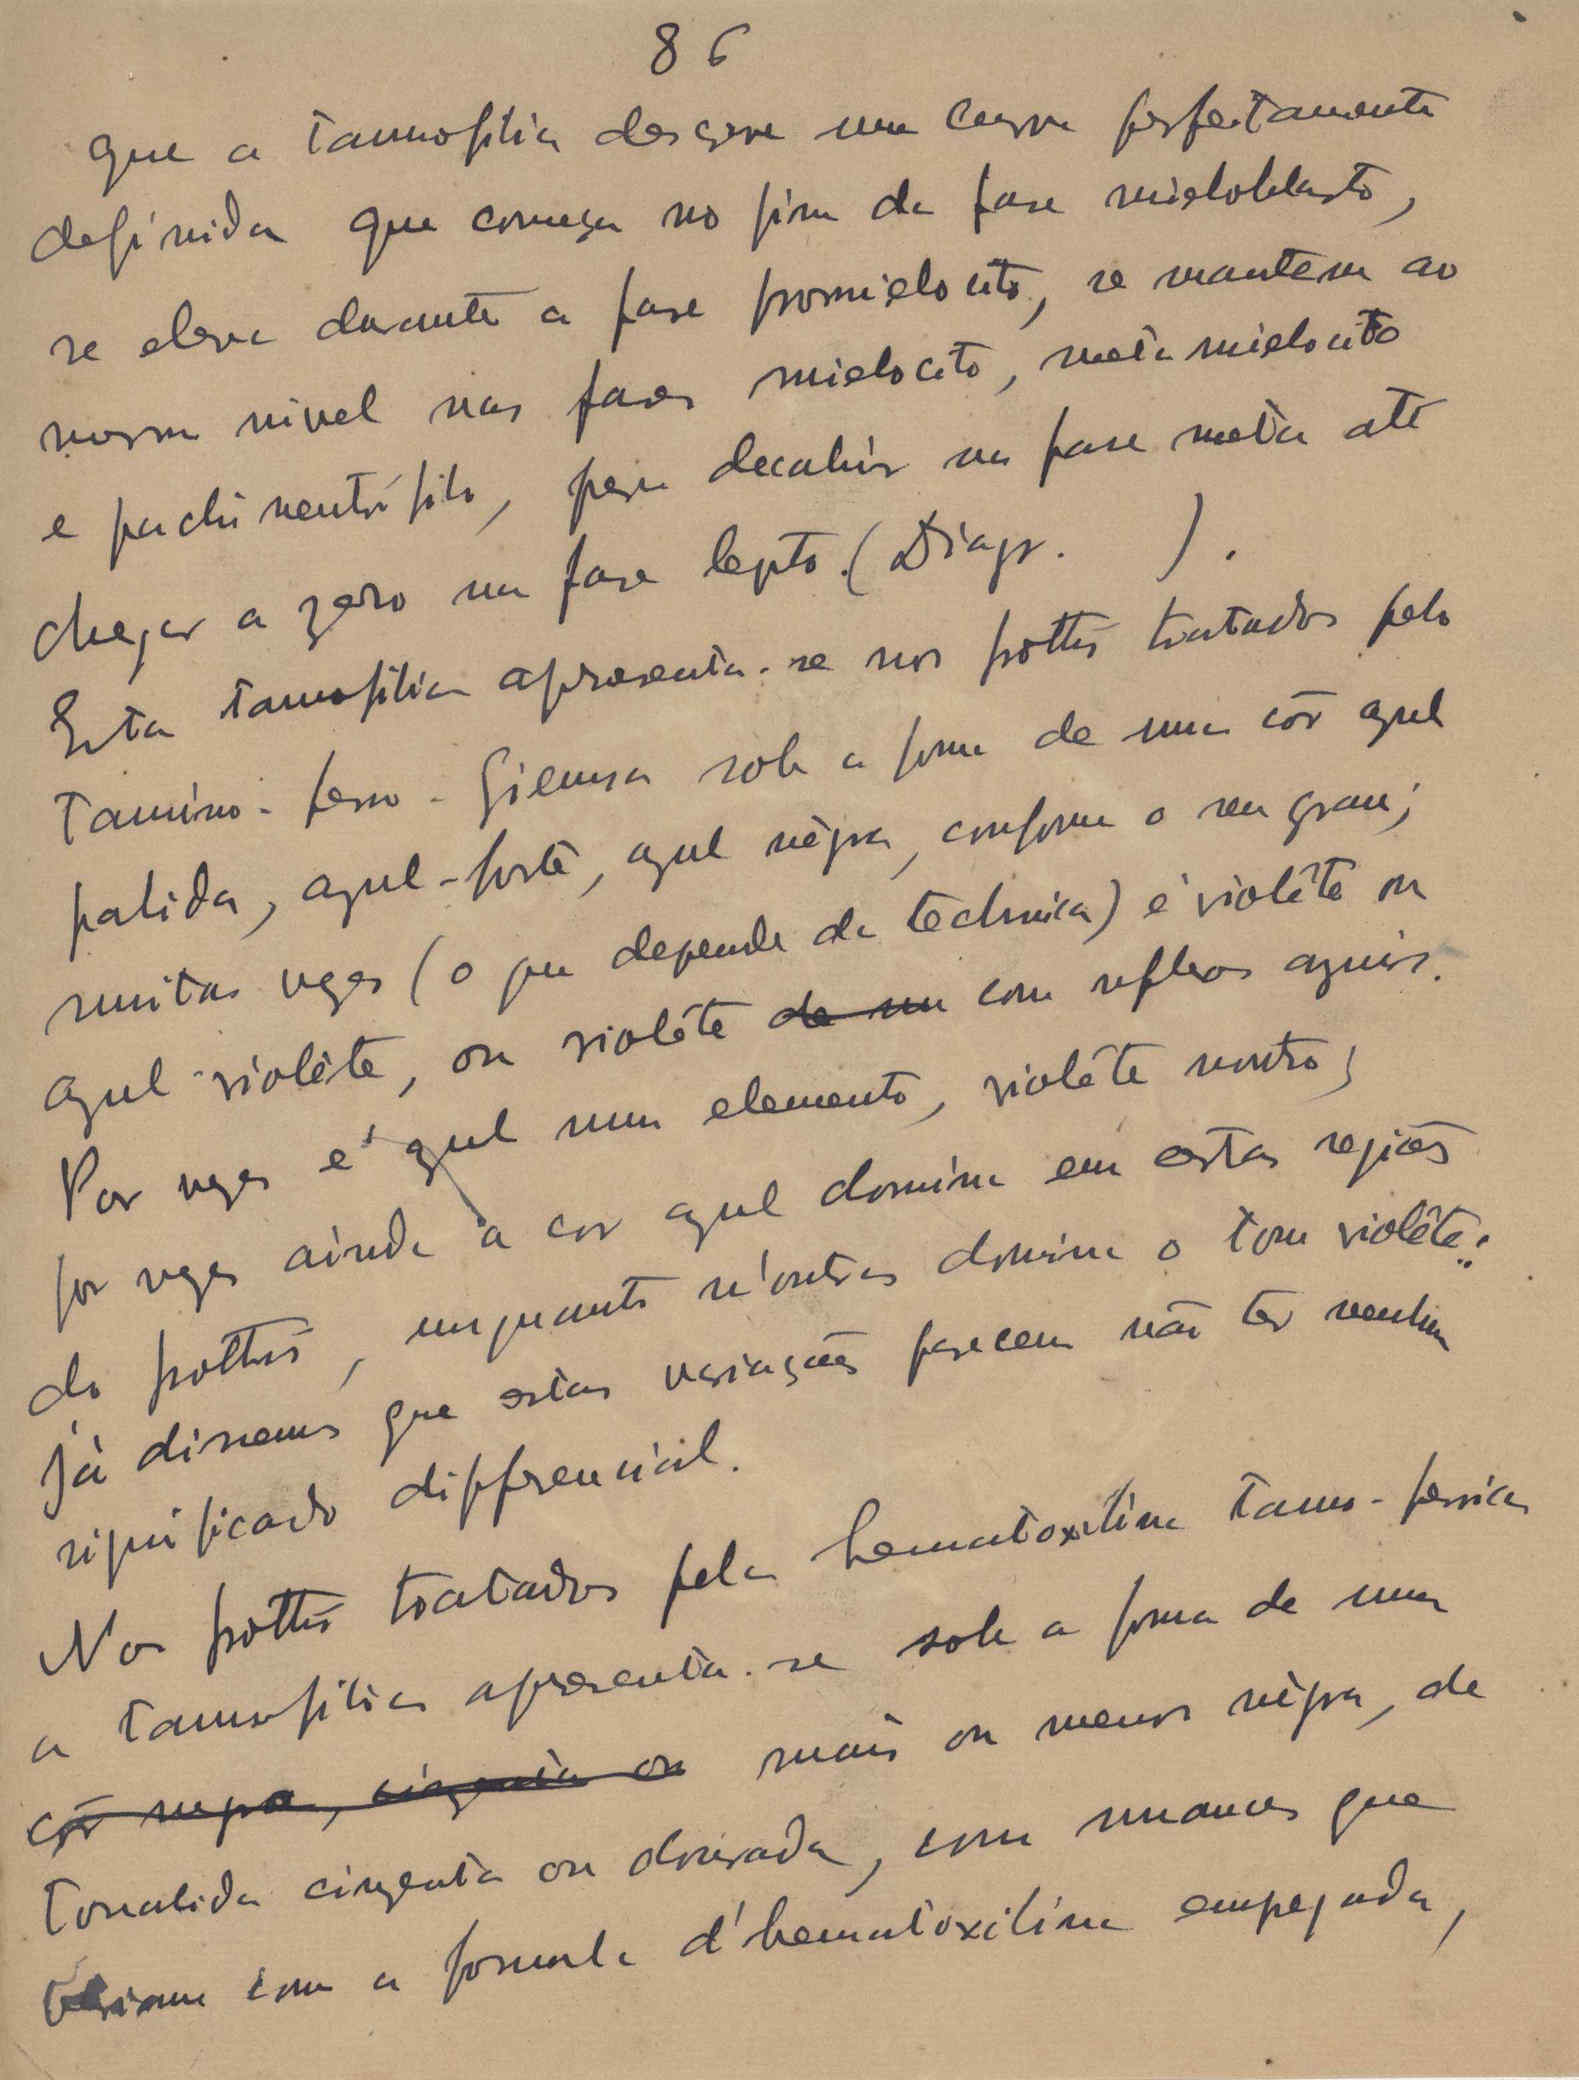 86
que a tannofilia descreve uma curva perfeitamente
definida que começa no fim da fase mieloblasto,
se eleva durante a fase promielocito, se mantem ao
mesmo nivel nas fases mielocito, metamielocito
e pachineutrófilo, para decahir na fase meta até
chegar a zero na fase lepto. (Diagr. ).
Esta tannofilia apresenta-se nos frottis tratados pelo
Tanino-ferro-Giemsa sob a forma de uma côr azul
palida, azul-forte, azul négra, conforme o seu grau;
muitas vezes (o que depende da technica) é violête ou
azul-violête, ou violête de um com reflexos azuis.
Por vezes é azul num elemento, violête noutro;
por vezes ainda a cor azul domina em estas regiões
do frottis, emquanto n'outras domina o tom violête:
Já dissemos que estas variações parecem não ter nenhum
significado differencial.
Nos frottis tratados pela hematoxilina tano-ferrica
a tannofilia apresenta-se sob a forma de uma
côr negra, cinzenta ou mais ou menos négra, de
tonalida cinzenta ou dourada, com nuances que
variam com a formula d'hematoxilina empegada,